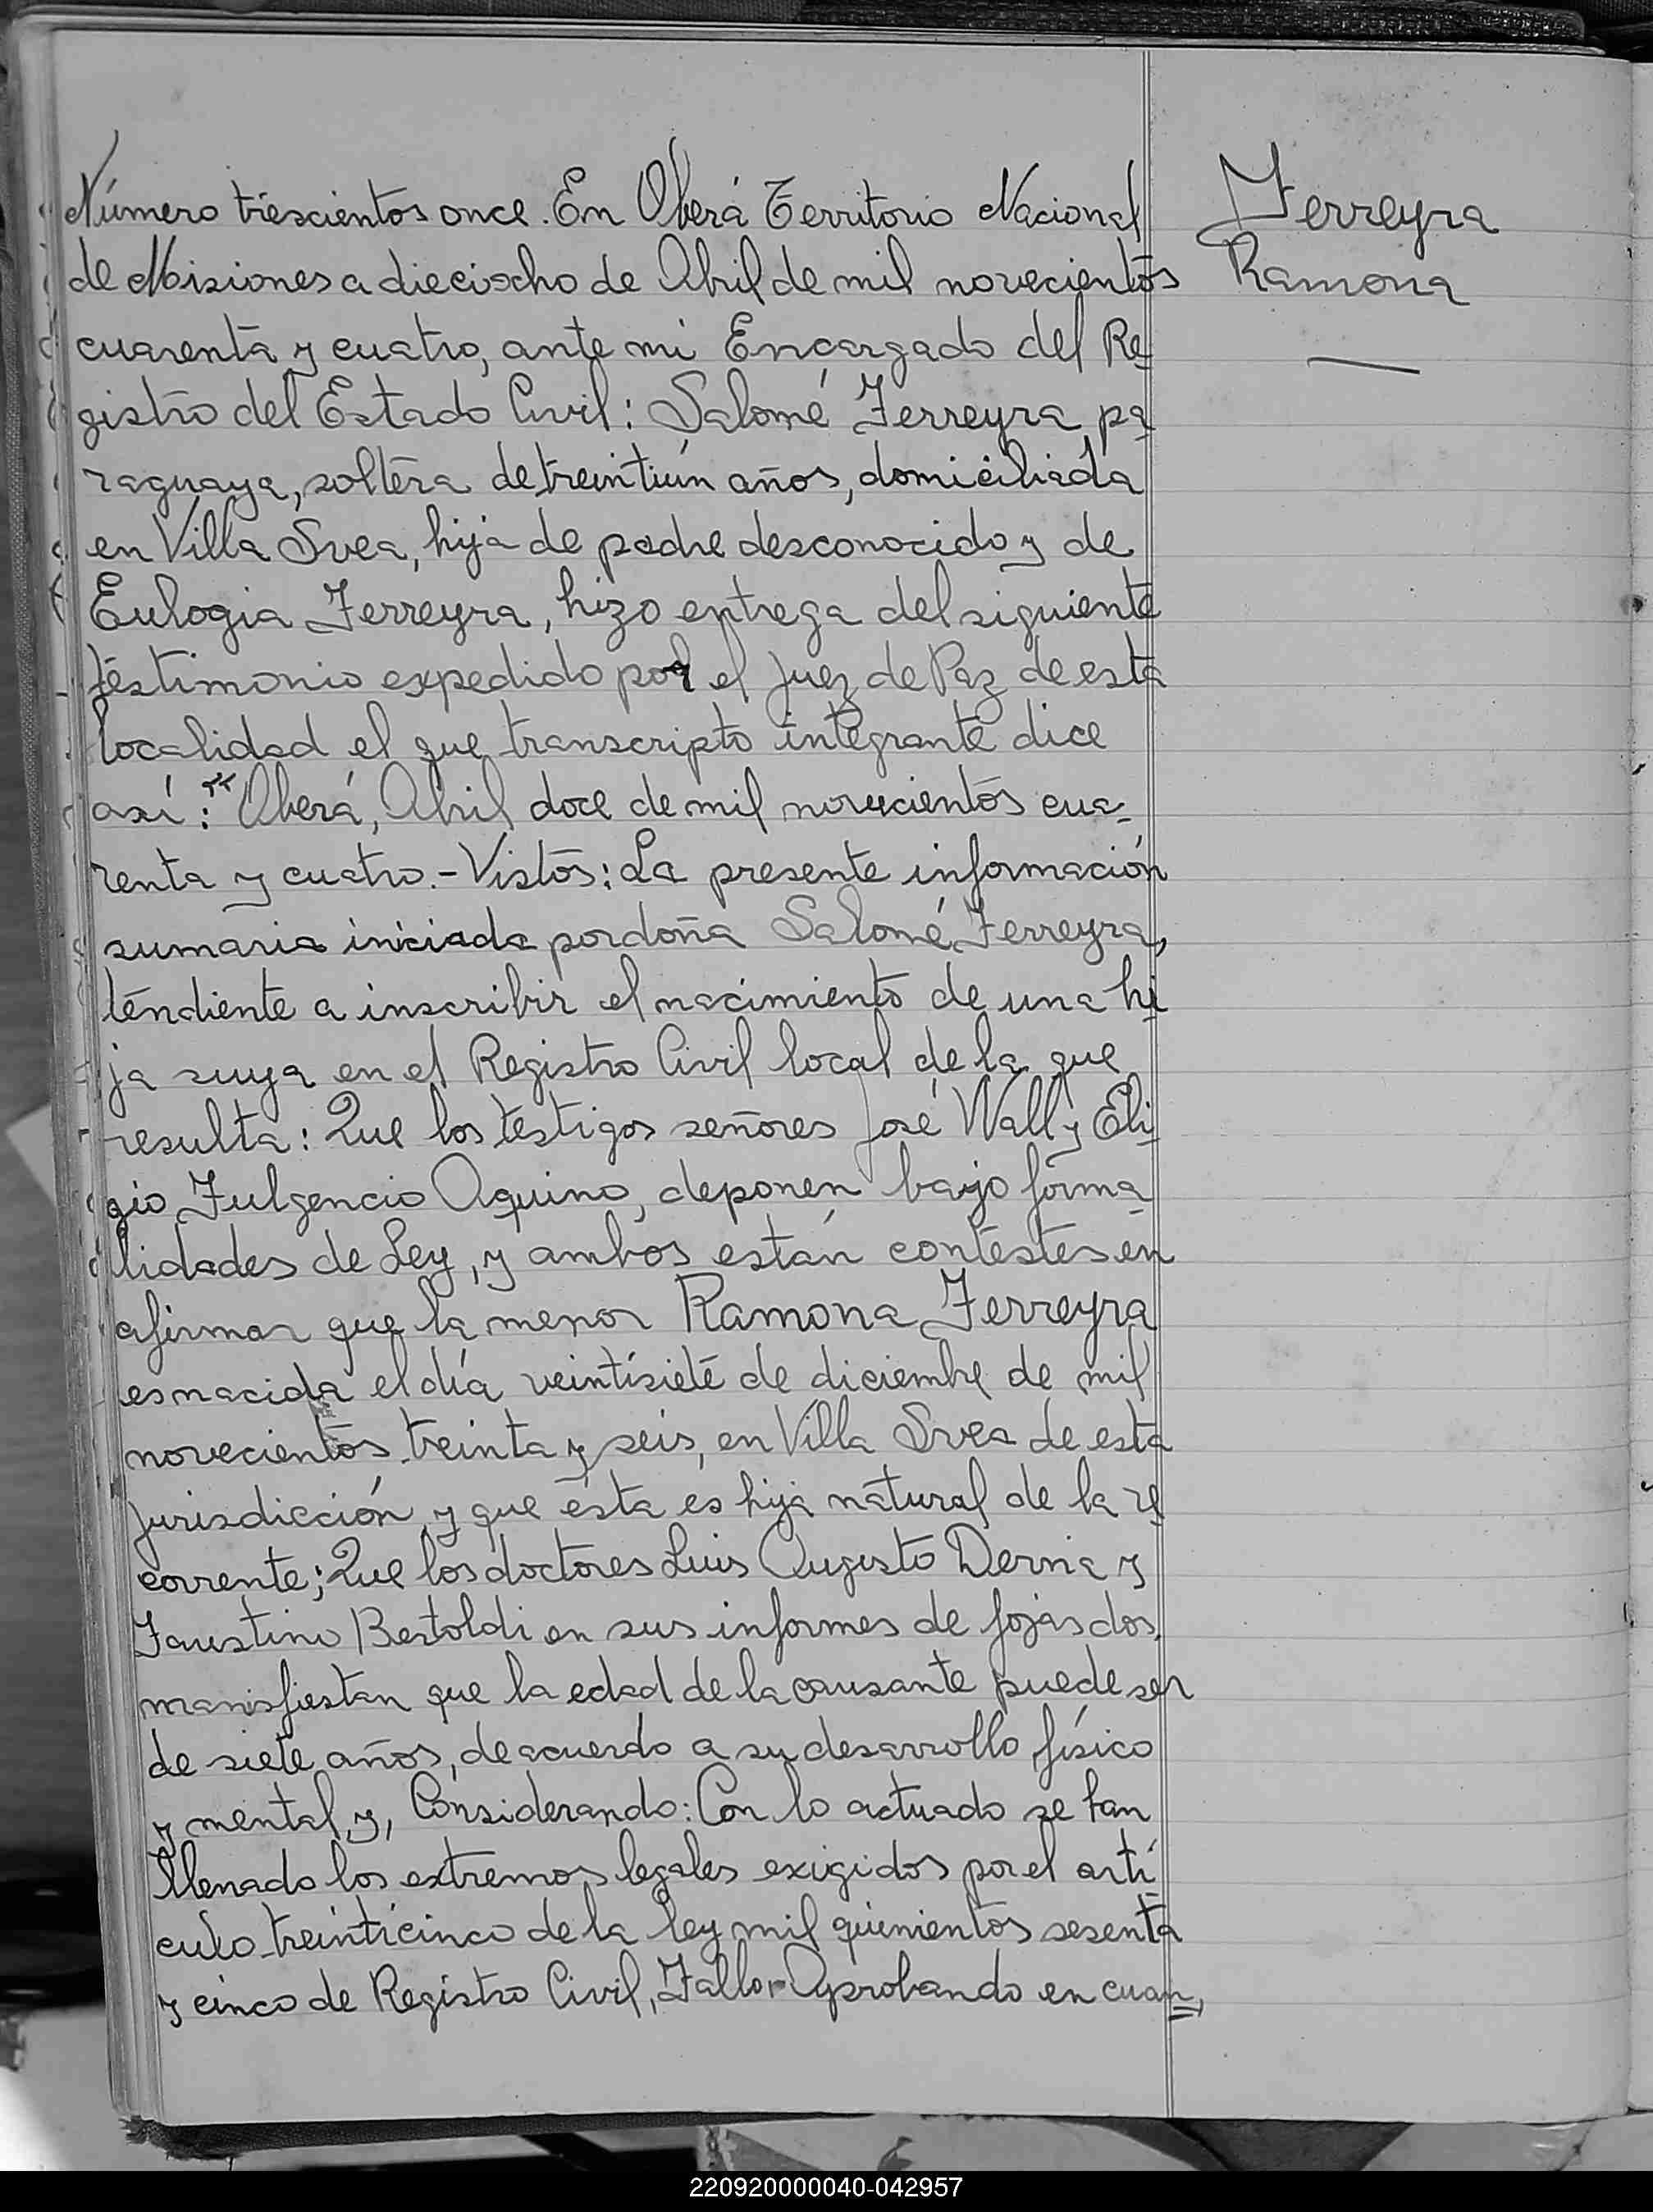 Número trescientos once. En Oberá Territorio Nacional
de Misiones a dieciocho de Abril de mil novecientos
cuarenta y cuatro, ante mi Encargado del Re
gistro del Estado Civil: Salomé Ferreyra, pa
raguaya, soltera de treintiún años, domiciliada
en Villa Svea, hija de padre desconocido y de
Eulogia Ferreyra, hizo entrega del siguiente
testimonio expedido por el Juez de Paz de esta
localidad el que transcripto integrante dice
así: "Oberá, Abril doce de mil novecientos cua-
renta y cuatro.- Vistos: La presente información
sumaria iniciada por doña Salomé Ferreyra,
tendiente a inscribir el nacimiento de una hi
ja suya en el Registro Civil local de la que
resulta: Que los testigos señores José Wall y Eli
gio Fulgencio Aquino, deponen bajo forma
lidades de Ley, y ambos están contestes en
afirmar que la menor Ramona Ferreyra
es nacida el día veintisiete de diciembre de mil
novecientos treinta y seis, en Villa Svea de esta
jurisdicción y que ésta es hija natural de la re
corrente; Que los doctores Luis Augusto Derna y
Faustino Bertoldi en sus informes de fojas dos,
manisfiestan que la edad de la causante puede ser
de siete años, de acuerdo a su desarrollo físico
y mental y, Considerando: Con lo actuado se han
llenado los extremos legales exigidos por el artí
culo treinticinco de la ley mil quinientos sesenta
y cinco de Registro Civil, Fallo:- Aprobando en cuan,
Ferreyra
Ramona
220920000040-042957